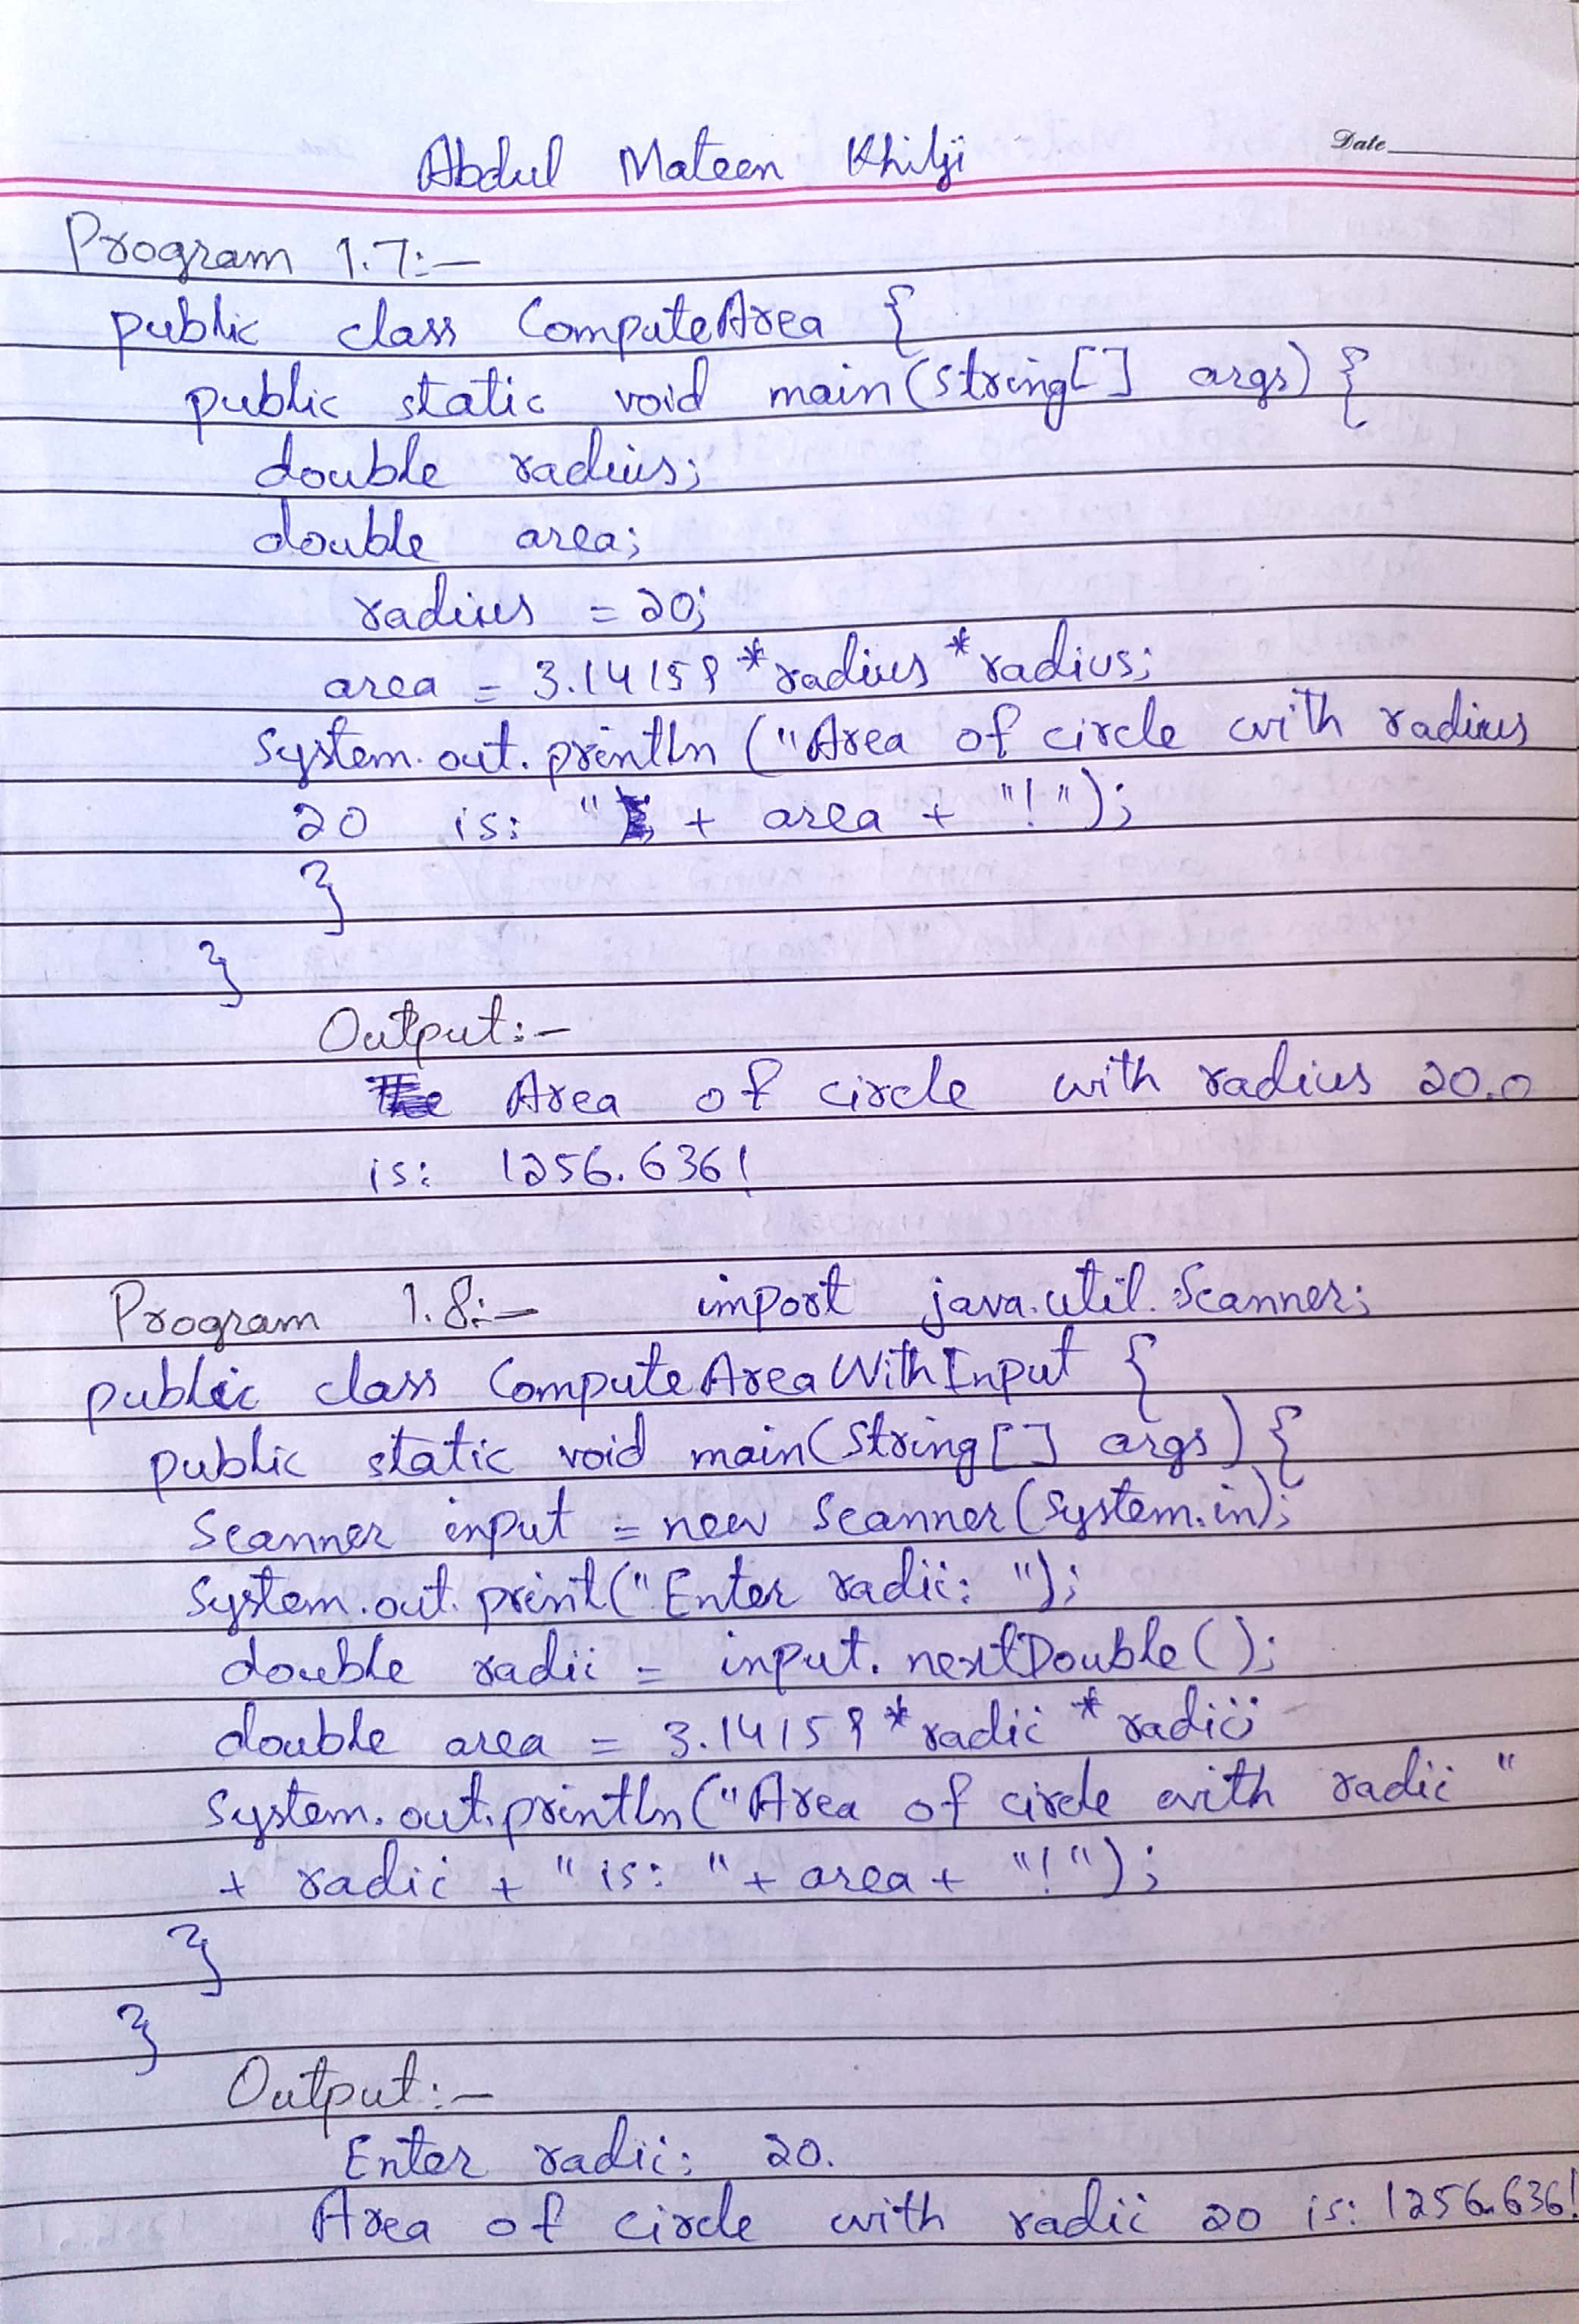 Date
Abdul Mateen Khilji
Program 1.7:-
public class ComputeArea {
public static void main(String[] args) {
double radius;
double area;
radius = 20;
area = 3.14159 * radius * radius;
System.out.println ("Area of circle with radius
20 is: " + area + "!");
}
}
Output:-
Area of circle with radius 20.0
is: 1256.636!
Program 1.8:- import java.util.Scanner;
public class ComputeAreaWithInput {
public static void main(String[] args) {
Scanner input = new Scanner(System.in);
System.out.print("Enter radii: ");
double radii = input.nextDouble();
double area = 3.14159 * radii * radii;
System.out.println("Area of circle with radii "
+ radii + " is: " + area + "!");
}
}
Output:-
Enter radii: 20.
Area of circle with radii 20 is: 1256.636!